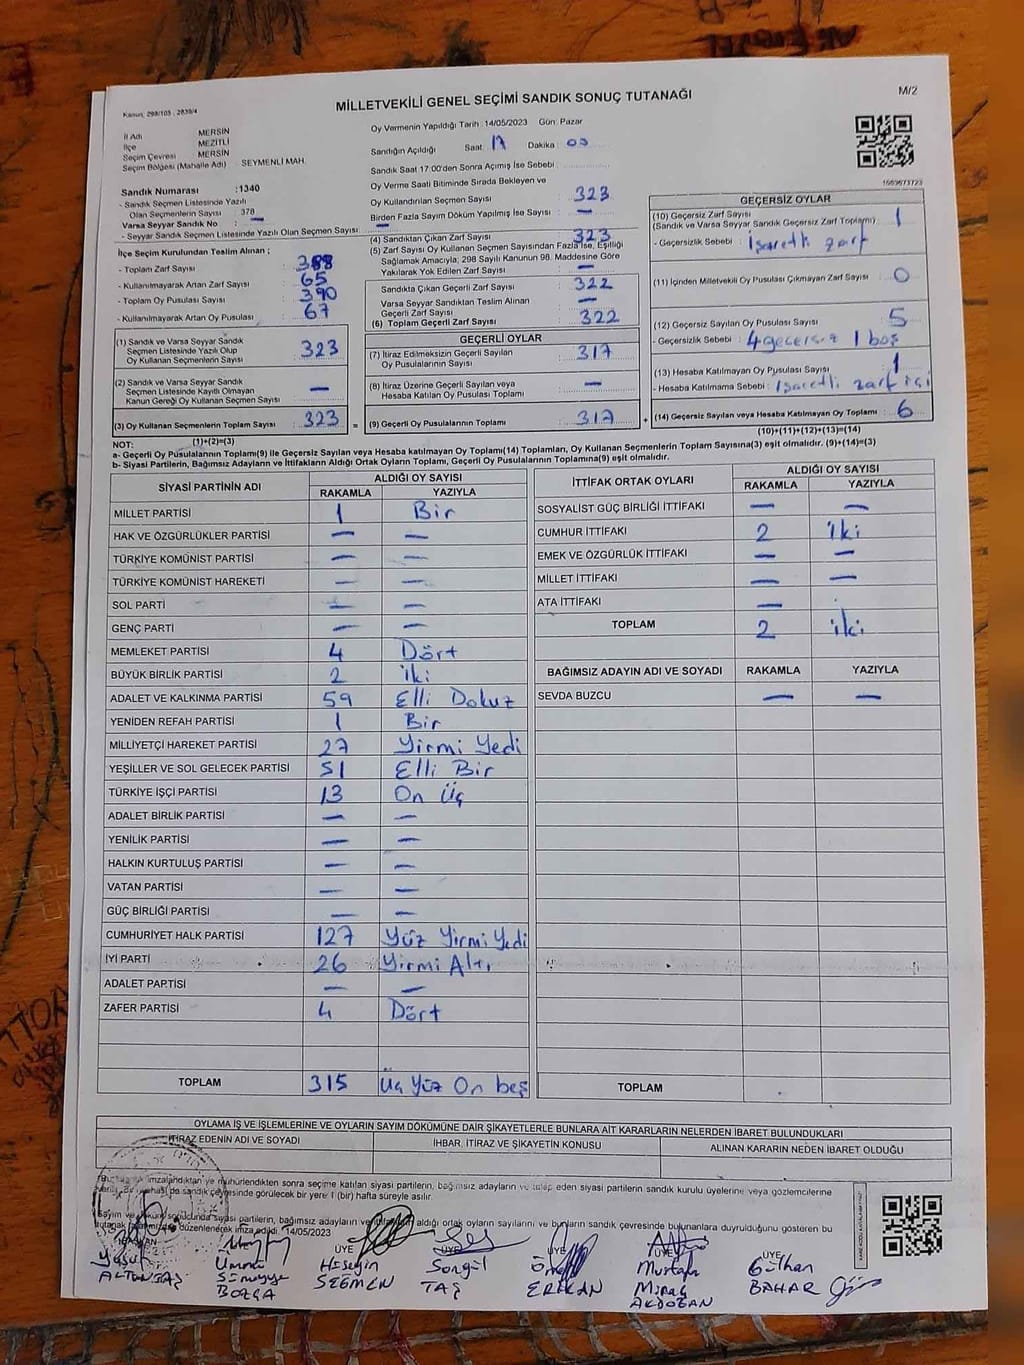 MİLLETVEKİLİ GENEL SEÇİMİ SANDIK SONUÇ TUTANAĞI
M/2
Kanun: 298/105 , 2839/4
İl Adı MERSİN
İlçe MEZİTLİ
Seçim Çevresi MERSİN
Seçim Bölgesi (Mahalle Adı) SEYMENLİ MAH.
Sandık Numarası :1340
- Sandık Seçmen Listesinde Yazılı
Olan Seçmenlerin Sayısı 378
Varsa Seyyar Sandık No : —
- Seyyar Sandık Seçmen Listesinde Yazılı Olan Seçmen Sayısı —
İlçe Seçim Kurulundan Teslim Alınan ;
- Toplam Zarf Sayısı : 388
- Kullanılmayarak Artan Zarf Sayısı : 65
- Toplam Oy Pusulası Sayısı : 390
- Kullanılmayarak Artan Oy Pusulası : 67
(1) Sandık ve Varsa Seyyar Sandık
Seçmen Listesinde Yazılı Olup
Oy Kullanan Seçmenlerin Sayısı 323
(2) Sandık ve Varsa Seyyar Sandık
Seçmen Listesinde Kayıtlı Olmayan
Kanun Gereği Oy Kullanan Seçmen Sayısı —
(3) Oy Kullanan Seçmenlerin Toplam Sayısı 323
(1)+(2)=(3)
Oy Vermenin Yapıldığı Tarih :14/05/2023 Gün: Pazar
Sandığın Açıldığı Saat 17 Dakika : 00
Sandık Saat 17:00'den Sonra Açılmış İse Sebebi :
Oy Verme Saati Bitiminde Sırada Bekleyen ve
Oy Kullandırılan Seçmen Sayısı : 323
Birden Fazla Sayım Döküm Yapılmış İse Sayısı : —
(4) Sandıktan Çıkan Zarf Sayısı : 323
(5) Zarf Sayısı Oy Kullanan Seçmen Sayısından Fazla İse, Eşitliği
Sağlamak Amacıyla, 298 Sayılı Kanunun 98. Maddesine Göre
Yakılarak Yok Edilen Zarf Sayısı : —
Sandıkta Çıkan Geçerli Zarf Sayısı : 322
Varsa Seyyar Sandıktan Teslim Alınan
Geçerli Zarf Sayısı : —
(6) Toplam Geçerli Zarf Sayısı : 322
GEÇERLİ OYLAR
(7) İtiraz Edilmeksizin Geçerli Sayılan
Oy Pusulalarının Sayısı : 317
(8) İtiraz Üzerine Geçerli Sayılan veya
Hesaba Katılan Oy Pusulası Toplamı : —
= (9) Geçerli Oy Pusulalarının Toplamı : 317 +
1663673723
GEÇERSİZ OYLAR
(10) Geçersiz Zarf Sayısı 1
(Sandık ve Varsa Seyyar Sandık Geçersiz Zarf Toplamı)
- Geçersizlik Sebebi : işaretli zarf
(11) İçinden Milletvekili Oy Pusulası Çıkmayan Zarf Sayısı : 0
(12) Geçersiz Sayılan Oy Pusulası Sayısı : 5
- Geçersizlik Sebebi : 4 geçersiz 1 boş
(13) Hesaba Katılmayan Oy Pusulası Sayısı : 1
- Hesaba Katılmama Sebebi : işaretli zarf içi
(14) Geçersiz Sayılan veya Hesaba Katılmayan Oy Toplamı : 6
(10)+(11)+(12)+(13)=(14)
NOT:
a- Geçerli Oy Pusulalarının Toplamı(9) ile Geçersiz Sayılan veya Hesaba katılmayan Oy Toplamı(14) Toplamları, Oy Kullanan Seçmenlerin Toplam Sayısına(3) eşit olmalıdır. (9)+(14)=(3)
b- Siyasi Partilerin, Bağımsız Adayların ve İttifakların Aldığı Ortak Oyların Toplamı, Geçerli Oy Pusulalarının Toplamına(9) eşit olmalıdır.
SİYASİ PARTİNİN ADI ALDIĞI OY SAYISI
RAKAMLA YAZIYLA
MİLLET PARTİSİ 1 Bir
HAK VE ÖZGÜRLÜKLER PARTİSİ — —
TÜRKİYE KOMÜNİST PARTİSİ — —
TÜRKİYE KOMÜNİST HAREKETİ — —
SOL PARTİ — —
GENÇ PARTİ — —
MEMLEKET PARTİSİ 4 Dört
BÜYÜK BİRLİK PARTİSİ 2 iki
ADALET VE KALKINMA PARTİSİ 59 Elli Dokuz
YENİDEN REFAH PARTİSİ 1 Bir
MİLLİYETÇİ HAREKET PARTİSİ 27 Yirmi Yedi
YEŞİLLER VE SOL GELECEK PARTİSİ 51 Elli Bir
TÜRKİYE İŞÇİ PARTİSİ 13 On Üç
ADALET BİRLİK PARTİSİ — —
YENİLİK PARTİSİ — —
HALKIN KURTULUŞ PARTİSİ — —
VATAN PARTİSİ — —
GÜÇ BİRLİĞİ PARTİSİ — —
CUMHURİYET HALK PARTİSİ 127 Yüz Yirmi Yedi
İYİ PARTİ 26 Yirmi Altı
ADALET PARTİSİ — —
ZAFER PARTİSİ 4 Dört
TOPLAM 315 Üç Yüz On beş
İTTİFAK ORTAK OYLARI ALDIĞI OY SAYISI
RAKAMLA YAZIYLA
SOSYALİST GÜÇ BİRLİĞİ İTTİFAKI — —
CUMHUR İTTİFAKI 2 iki
EMEK VE ÖZGÜRLÜK İTTİFAKI — —
MİLLET İTTİFAKI — —
ATA İTTİFAKI —
TOPLAM 2 iki
BAĞIMSIZ ADAYIN ADI VE SOYADI RAKAMLA YAZIYLA
SEVDA BUZCU — —
TOPLAM
OYLAMA İŞ VE İŞLEMLERİNE VE OYLARIN SAYIM DÖKÜMÜNE DAİR ŞİKAYETLERLE BUNLARA AİT KARARLARIN NELERDEN İBARET BULUNDUKLARI
İTİRAZ EDENİN ADI VE SOYADI İHBAR, İTİRAZ VE ŞİKAYETİN KONUSU ALINAN KARARIN NEDEN İBARET OLDUĞU
imzalandıktan ve mühürlendikten sonra seçime katılan siyasi partilerin, bağımsız adayların ve talep eden siyasi partilerin sandık kurulu üyelerine veya gözlemcilerine
da sandık çevresinde görülecek bir yere 1 (bir) hafta süreyle asılır.
Sayım ve sonucunda siyasi partilerin, bağımsız adayların ve aldığı ortak oyların sayılarını ve bunların sandık çevresinde bulunanlara duyrulduğunu gösteren bu
tutanak düzenlenerek imza edildi. 14/05/2023
ÜYE ÜYE ÜYE ÜYE ÜYE
Yusuf Ümmü Hüseyin Songül Mustafa Gülhan
ALTUNTAŞ Sümeyye SEĞMEN TAŞ Miraç BAHAR
BOZĞA AKDOĞAN